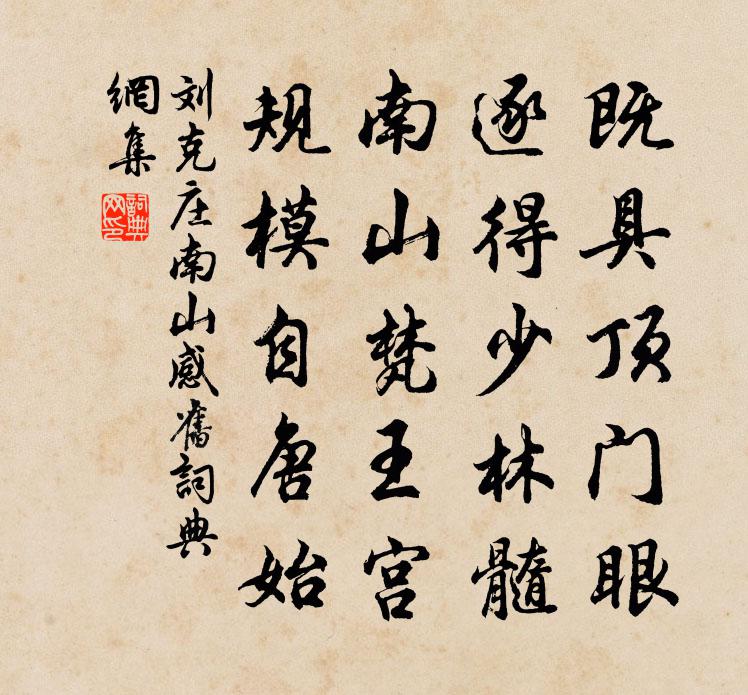 既具顶门眼
逐得少林髓
南山梵王宫
规模自唐始
刘克庄南山感旧詞典
網集
詞典
网印